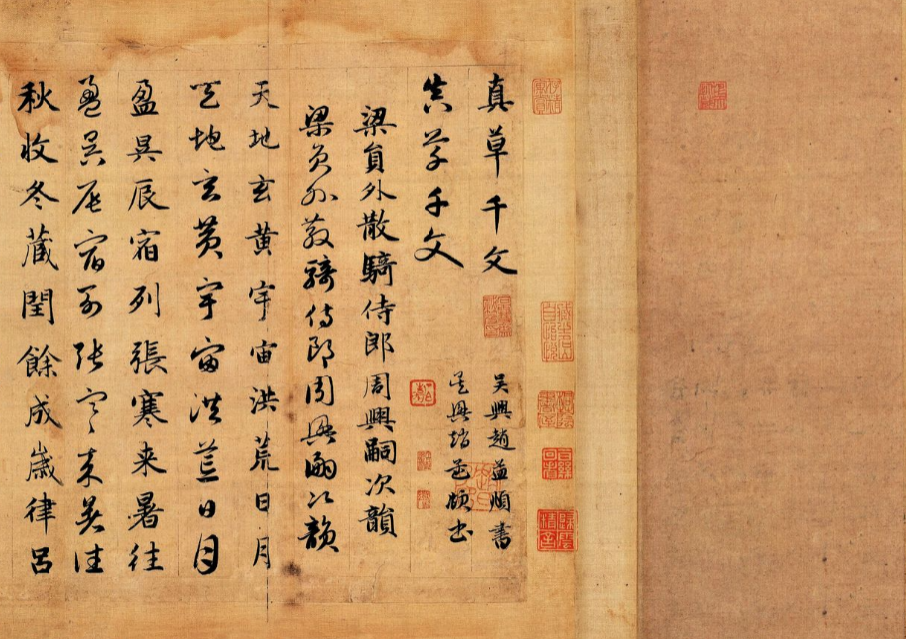 真草千文
吳興趙孟頫書
真草千文
吳興趙孟頫書
梁員外散騎侍郎周興嗣次韻
梁員外散騎侍郎周興嗣次韻
天地玄黃宇宙洪荒日月
天地玄黃宇宙洪荒日月
盈昃辰宿列張寒来暑往
盈昃辰宿列張寒来暑往
秋收冬蔵閏餘成歲律呂